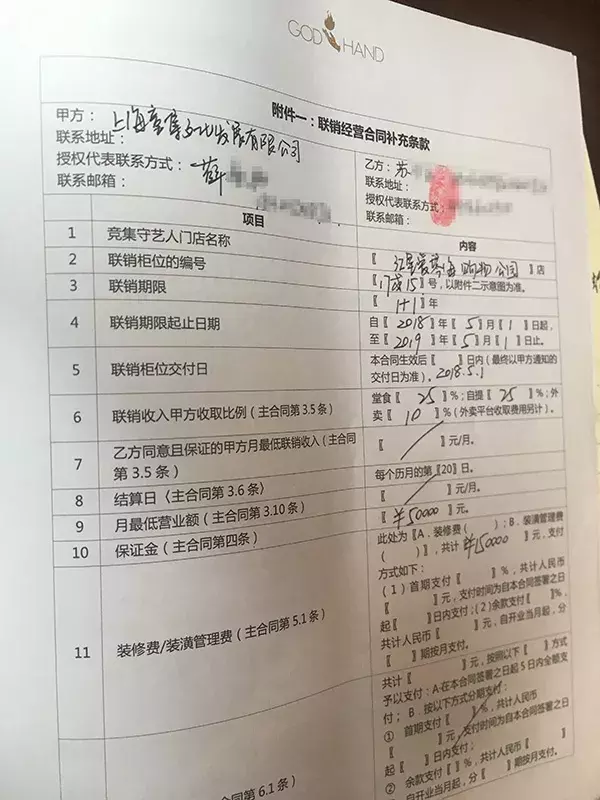 GOD HAND
附件一：联销经营合同补充条款
甲方：上海竞集文化发展有限公司
联系地址：
授权代表联系方式：薛
联系邮箱：
乙方：苏
联系地址：
授权代表联系方式：
联系邮箱：
项目
内容
1 竞集守艺人门店名称 【江星爱琴海购物公园】店
2 联销柜位的编号 【17或15】号，以附件二示意图为准。
3 联销期限 【1+1】年
4 联销期限起止日期 自【2018】年【5】月【1】日起，
至【2019】年【5】月【1】日止。
5 联销柜位交付日 本合同生效后【 】日内（最终以甲方通知的
交付日为准）。2018.5.1
6 联销收入甲方收取比例（主合同第3.5条） 堂食【25】%；自提【25】%；外
卖【10】%（外卖平台收取费用另计）。
7 乙方同意且保证的甲方月最低联销收入（主合同
第3.5条） 【 】元/月。
8 结算日（主合同第3.6条） 每个历月的第【20】日。
9 月最低营业额（主合同第3.10条） 【 】元/月。
10 保证金（主合同第四条） 【¥50000】元。
11 装修费/装潢管理费（主合同第5.1条） 此处为【A．装修费（ ）；B．装潢管理费
（ ）】，共计【¥150000】元，支付
方式如下：
（1）首期支付【 】%，共计人民币
【 】元，支付时间为自本合同签署之日
起【 】日内支付；（2）余款支付【 】%，
共计人民币【 】元，自开业当月起，分
【 】期按月支付。
第6.1条）
共计【 】元，按照以下【 】方式
予以支付：A.在本合同签署之日起5日内全额支
付； B．按以下方式分期支付：
① 首期支付【 】%，共计人民币
【 】元，支付时间为自本合同签署之日
起【 】日内支付；
② 余款支付【 】%，共计人民币【 】
元，自开业当月起，分【 】期按月支付。